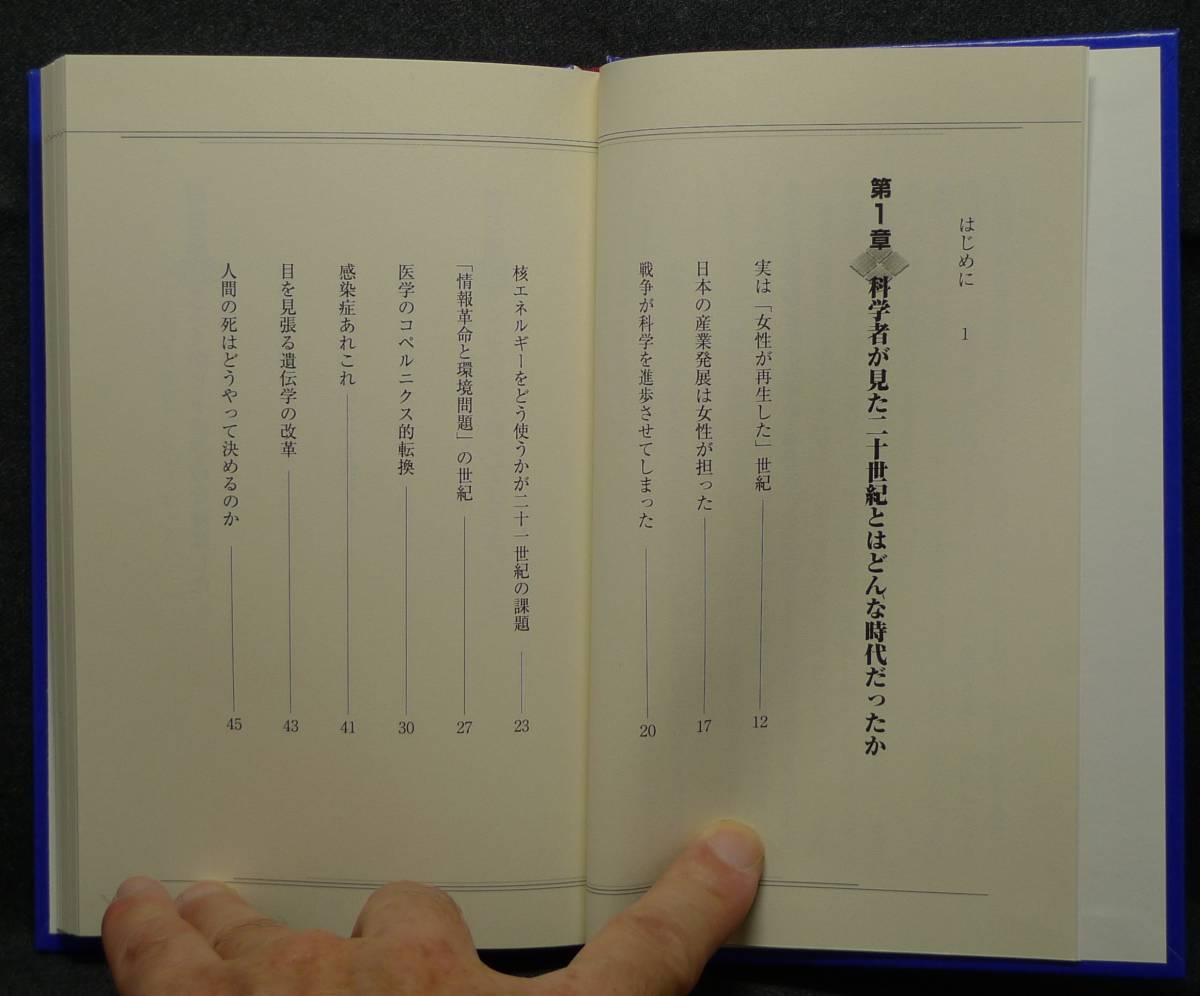 はじめに 1
第1章 科学者が見た二十世紀とはどんな時代だったか
実は「女性が再生した」世紀 12
日本の産業発展は女性が担った 17
戦争が科学を進歩させてしまった 20
核エネルギーをどう使うかが二十一世紀の課題 23
「情報革命と環境問題」の世紀 27
医学のコペルニクス的転換 30
感染症あれこれ 41
目を見張る遺伝学の改革 43
人間の死はどうやって決めるのか 45